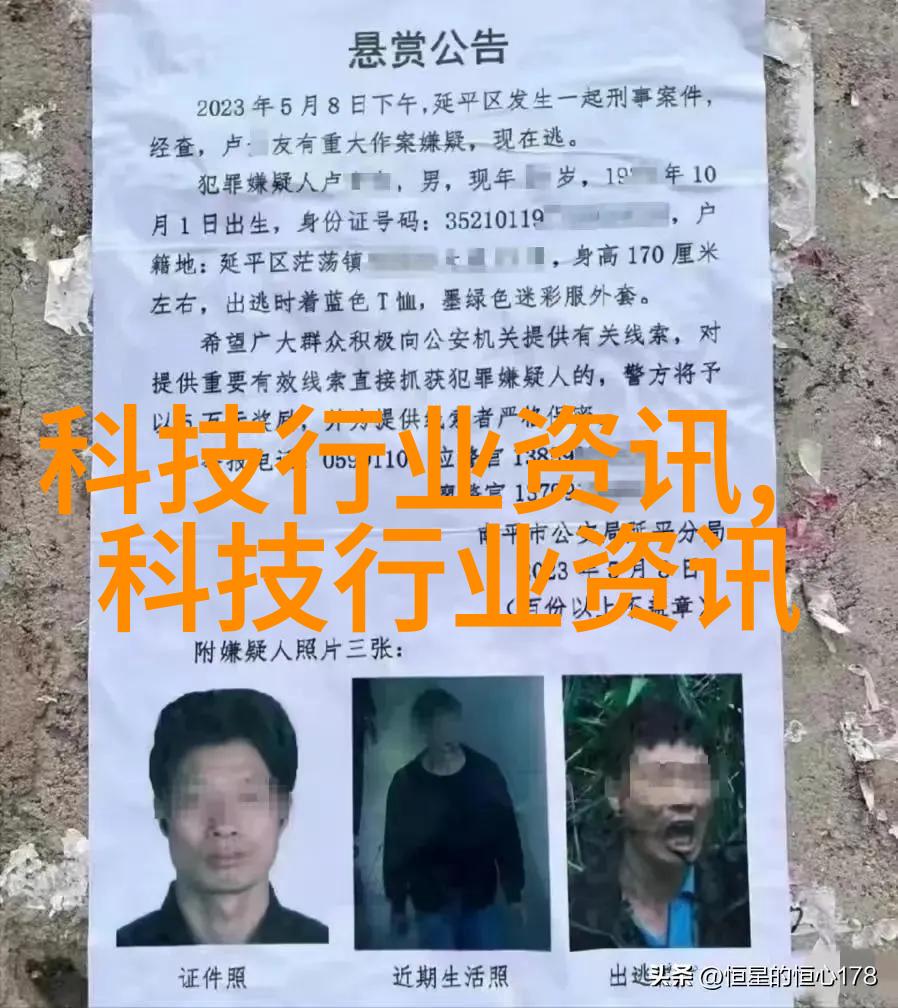 悬赏公告
2023年5月8日下午,延平区发生一起刑事案件,
经查,卢 友有重大作案嫌疑,现在逃。
犯罪嫌疑人卢 ,男,现年 岁,19 年10
月1日出生,身份证号码:35210119 ,户
籍地:延平区茫荡镇 ,身高170厘米
左右,出逃时着蓝色T恤,墨绿色迷彩服外套。
希望广大群众积极向公安机关提供有关线索,对
提供重要有效线索直接抓获犯罪嫌疑人的,警方将予
科技行业资讯,
科技行业资讯
南平市公安局延平分局
附嫌疑人照片三张:
证件照
近期生活照
出逃
头条 @恒星的恒心178